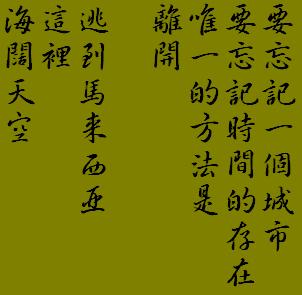 要忘記一個城市
要忘記時間的存在
唯一的方法是
離開
逃到馬来西亚
這裡
海闊天空